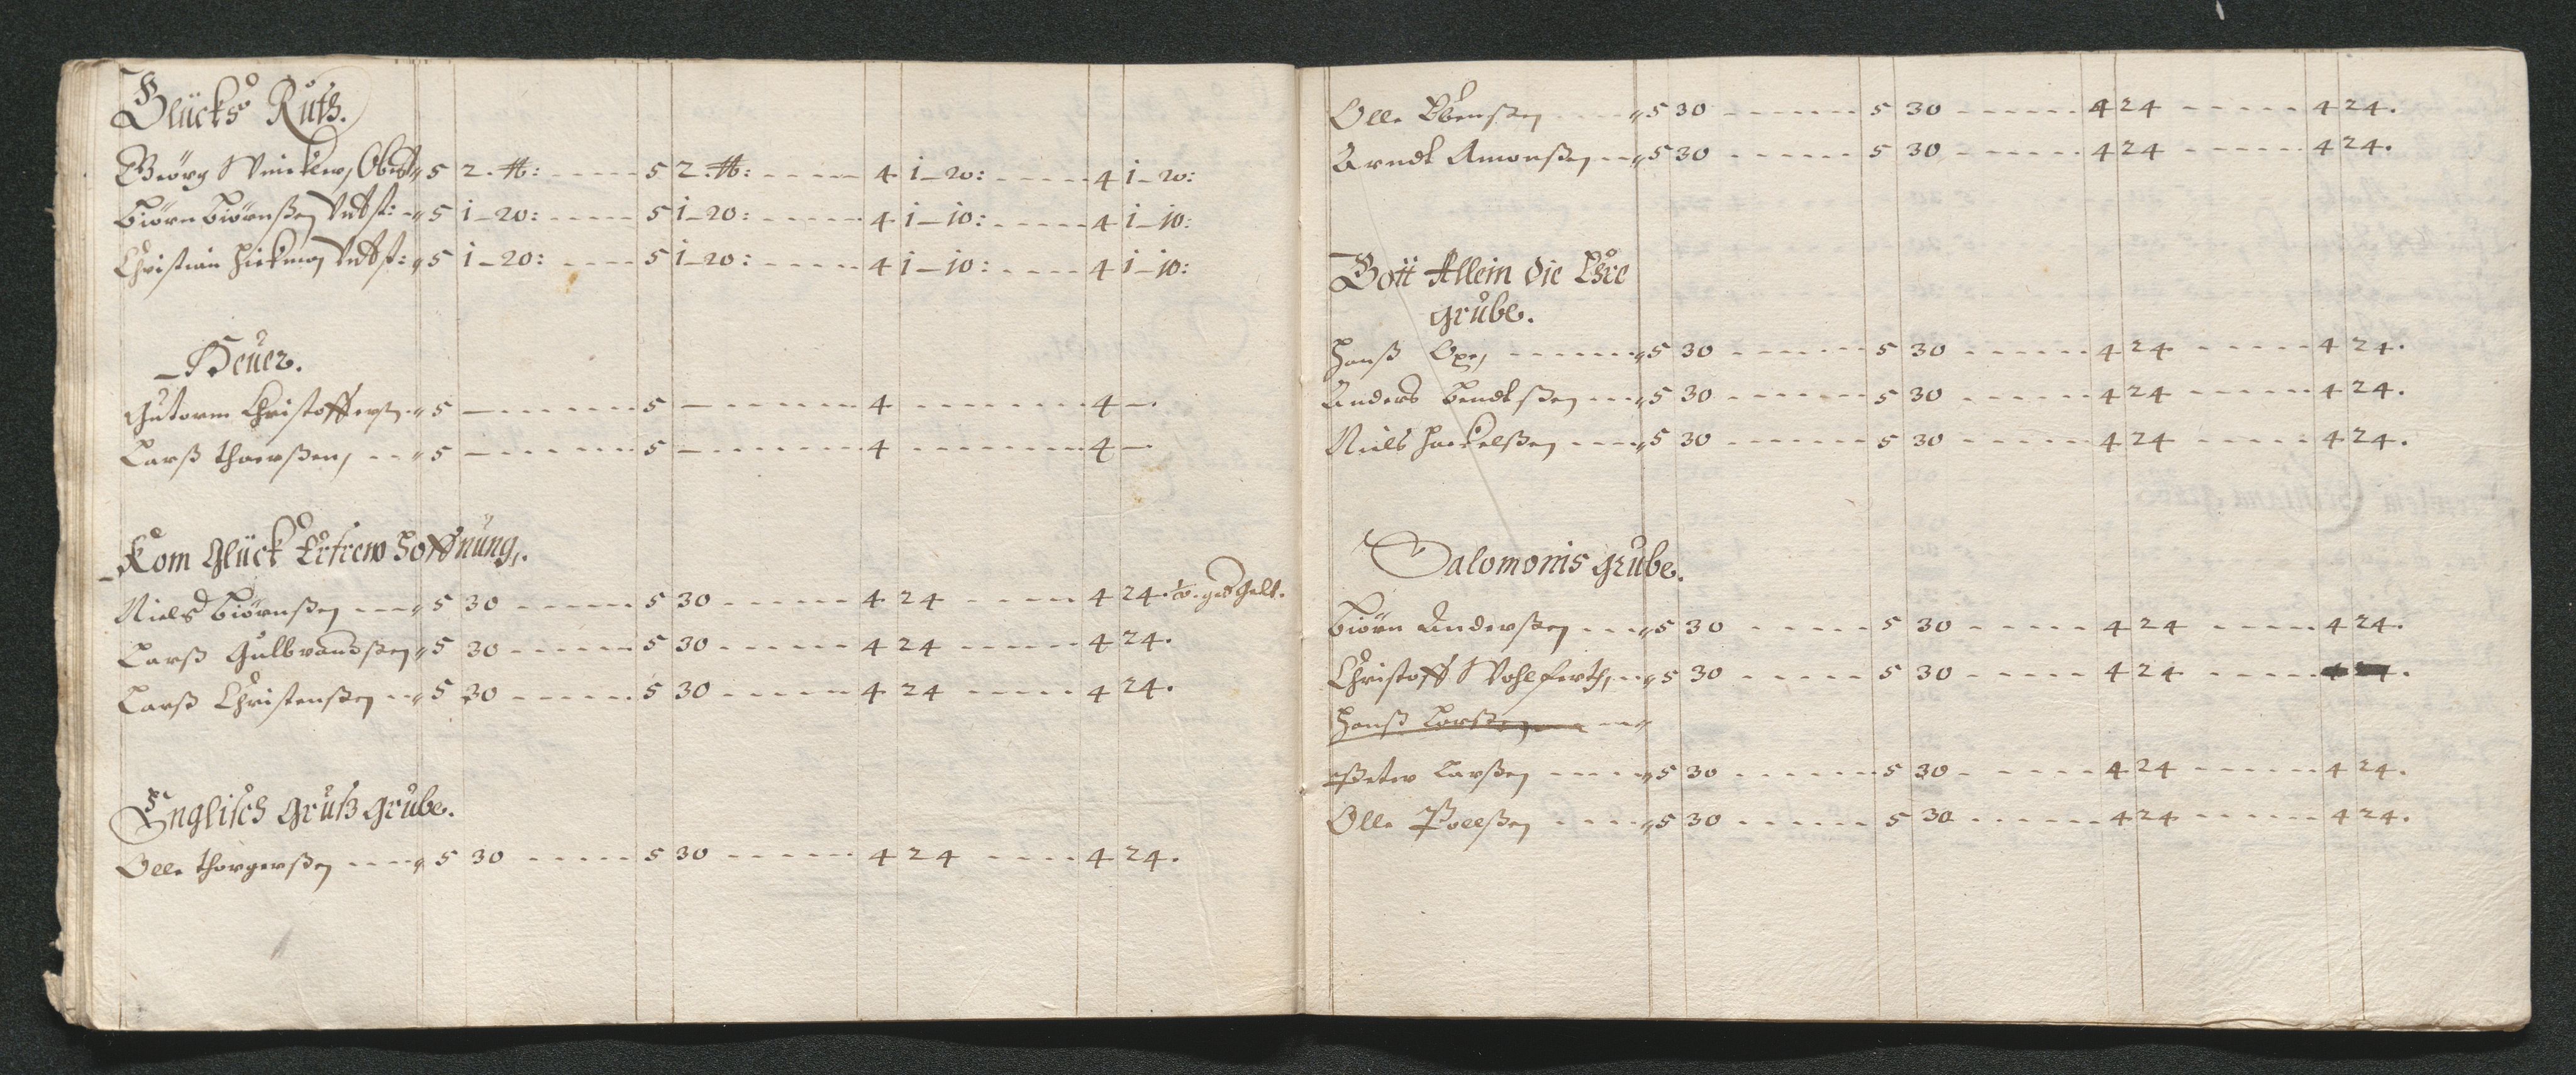 Glücks Ruth.
Geörg Winckler, Obst: 5 2. #: ----- 5 2. #: ----- 4 1-20: ----- 4 1-20:
Biörn Biörnßen Undst: -- 5 1-20: ----- 5 1-20: ----- 4 1-10: ----- 4 1-10:
Christian Undst: 5 1-20: ---- 5 1-20: ----- 4 1-10: ---- 4 1-10:
Heüer.
Gutorm Christoffers. 5 — ------ 5 — ------ 4 ------- 4 —.
Larß Thoerßen, -- 5 — ------ 5 — ------ 4 ------- 4 —
Kom Glück Erfrew Hoffnung.
Niels Biörnßen --- 5 30 ----- 5 30 ----- 4 24 ----- 4 24. gelt.
Larß Gulbrandßen 5 30 ----- 5 30 ----- 4 24 ----- 4 24.
Larß Christenßen -- 5 30 ----- 5 30 ----- 4 24 ----- 4 24.
Englisch Gruß Grube.
Olle Thorgerßen ---- 5 30 ----- 5 30 ----- 4 24 ---- 4 24.
Olle Ebenßen ---- 5 30 ------ 5 30 ----- 4 24 ----- 4 24.
Arndt Amonßen -- 5 30 ------ 5 30 ----- 4 24 ----- 4 24.
Gott Allein die Ehre
Grube.
Hanß ------- 5 30 ------ 5 30 ----- 4 24 ----- 4 24.
Anders Bendtßen --- 5 30 ------ 5 30 ----- 4 24 ----- 4 24.
Niels Hackelßen ---- 5 30 ------ 5 30 ----- 4 24 ----- 4 24.
Salomonis Grube.
Biörn Anderßen --- 5 30 ----- 5 30 ----- 4 24 ----- 4 24.
Christoff Wohlferth, -- 5 30 ----- 5 30 ----- 4 24 ----- 4 24.
Hanß Larßen ---
Peter Larßen ---- 5 30 ------ 5 30 ----- 4 24 ----- 4 24.
Olle Poelßen ---- 5 30 ------ 5 30 ----- 4 24 ----- 4 24.